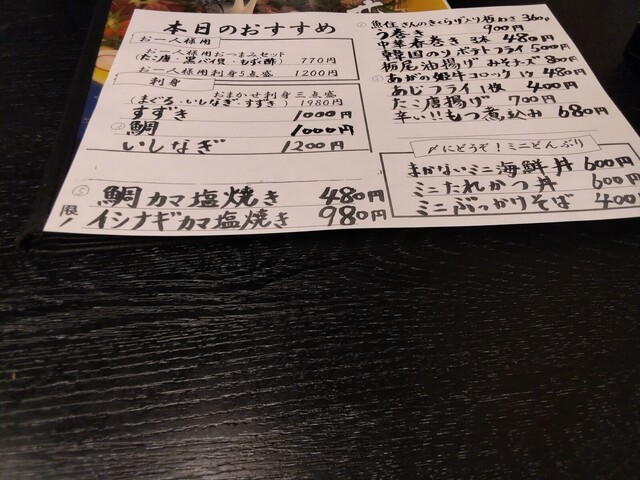 本日のおすすめ
お一人様用
お一人様用おつまみセット
(たこ唐・黒バイ貝・もずく酢) 770円
お一人様用刺身5点盛 1200円
刺身
おまかせ刺身三点盛
(まぐろ・いしなぎ・すずき) 1980円
すずき 1000円
鯛 1000円
いしなぎ 1200円
鯛カマ塩焼き 480円
限1 イシナギカマ塩焼き 980円
魚住さんのきくらげ入り板わさ 360円
う巻き 900円
中華春巻き 3本 480円
韓国のりポテトフライ 500円
栃尾油揚げ みそチーズ 800円
あがの姫牛コロッケ 1ケ 480円
あじフライ 1枚 400円
たこ唐揚げ 700円
辛い!!もつ煮込み 680円
〆にどうぞ!ミニどんぶり
まかないミニ海鮮丼 600円
ミニたれかつ丼 600円
ミニぶっかけそば 400